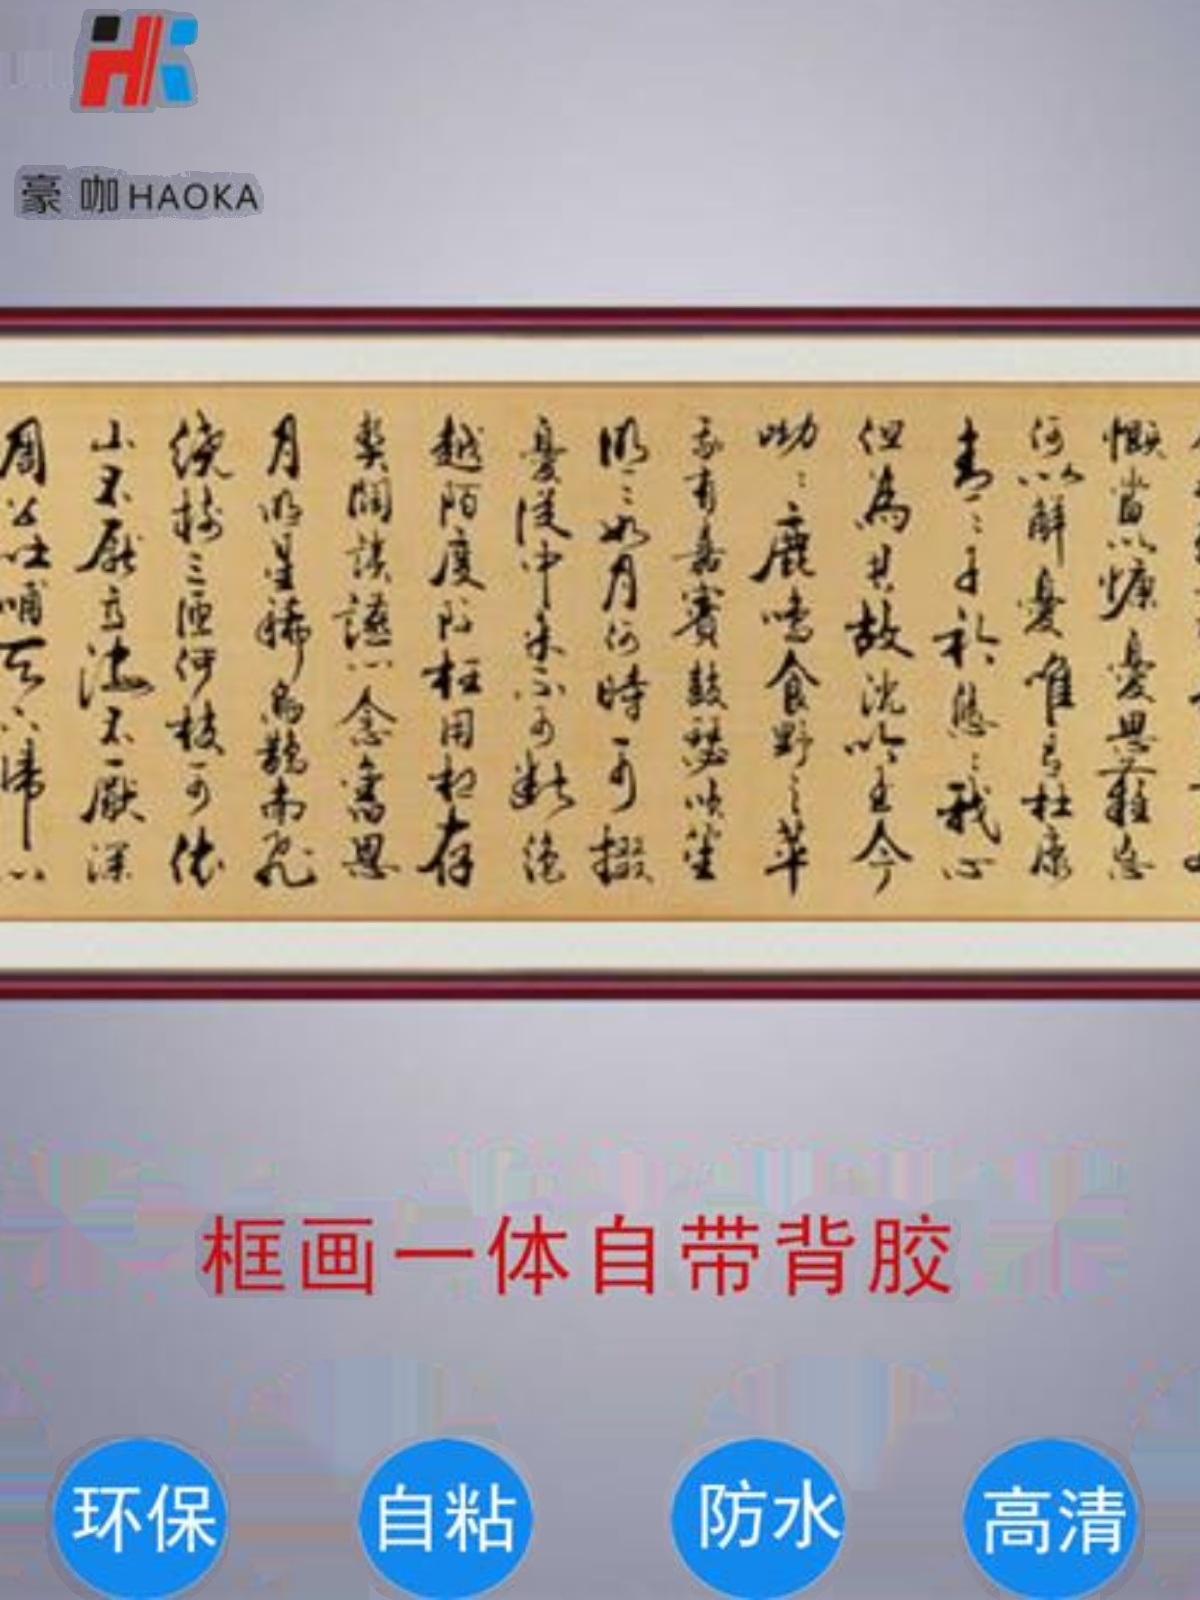 豪咖HAOKA
慨当以慷憂思難忘
何以解憂唯有杜康
青〻子衿悠〻我心
但為君故沈吟至今
呦〻鹿鳴食野之苹
我有嘉賓鼓瑟吹笙
明〻如月何時可掇
憂從中来不可断绝
越陌度阡枉用相存
契阔談讌心念舊恩
月明星稀烏鵲南飛
绕樹三匝何枝可依
山不厭高海不厭深
周公吐哺天下归心
框画一体自带背胶
环保
自粘
防水
高清